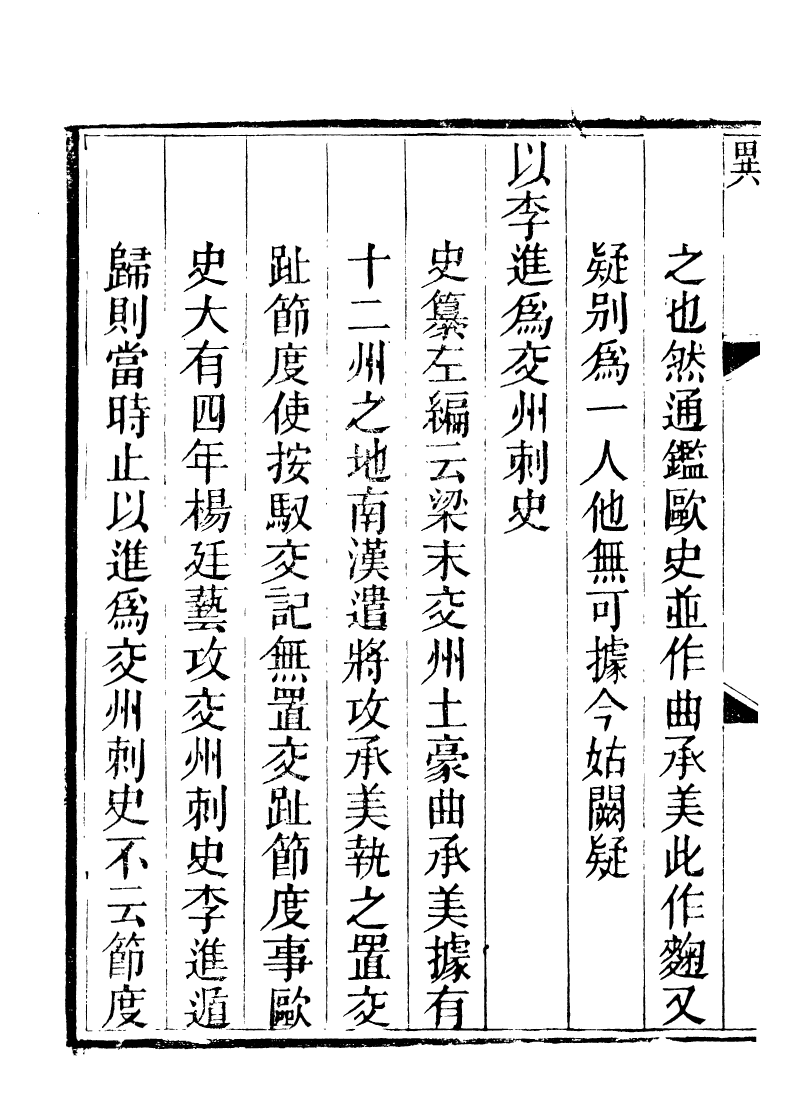 異
之也然通鑑歐史並作曲承美此作麴又
疑别爲一人他無可據今姑闕疑
以李進爲交州刺史
史纂左編云梁末交州土豪曲承美據有
十二州之地南漢遣將攻承美執之置交
趾節度使按馭交記無置交趾節度事歐
史大有四年楊廷藝攻交州刺史李進遁
歸則當時止以進爲交州刺史不云節度